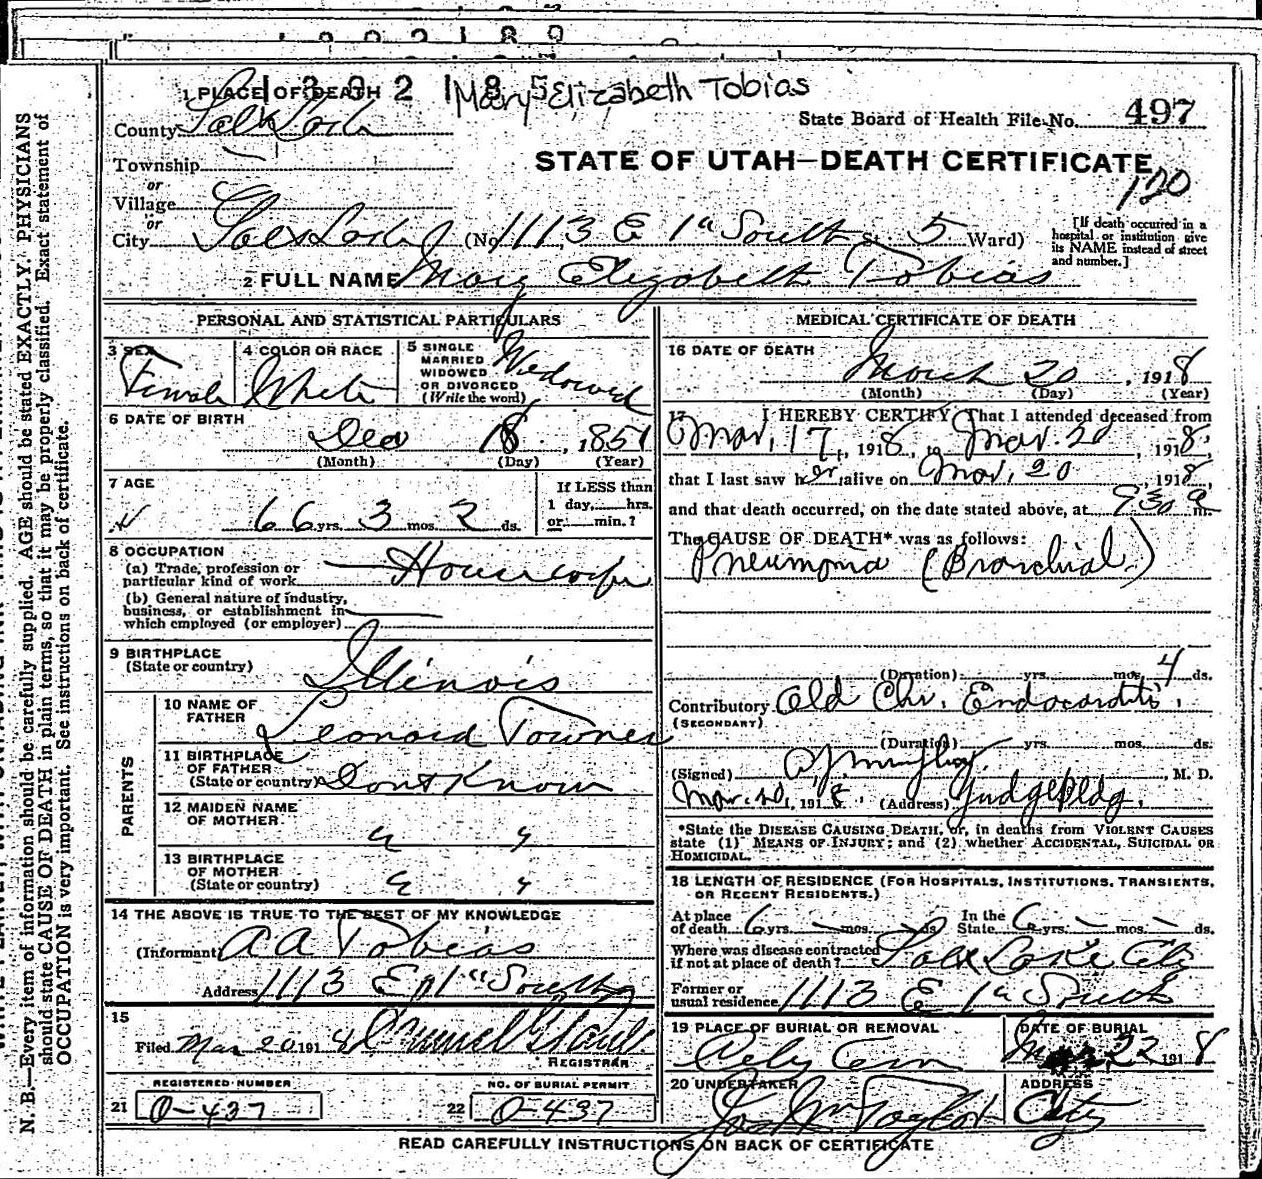 1302185
Mary Elizabeth Tobias
1 PLACE OF DEATH
County Salt Lake
State Board of Health File No. 497
Township
STATE OF UTAH—DEATH CERTIFICATE
120
or
Village
or
City Salt Lake (No. 1113 E 1st South St. 5 Ward)
[If death occurred in a hospital or institution give its NAME instead of street and number.]
2 FULL NAME Mary Elizabeth Tobias
PERSONAL AND STATISTICAL PARTICULARS
3 SEX Female
4 COLOR OR RACE White
5 SINGLE MARRIED WIDOWED OR DIVORCED (Write the word) Widowed
6 DATE OF BIRTH
Dec 18, 1851
(Month) (Day) (Year)
7 AGE
66 yrs. 3 mos. 2 ds.
If LESS than 1 day, hrs. or min.?
8 OCCUPATION
(a) Trade, profession or particular kind of work Housewife
(b) General nature of industry, business, or establishment in which employed (or employer)
9 BIRTHPLACE
(State or country) Illinois
PARENTS
10 NAME OF FATHER Leonard Towner
11 BIRTHPLACE OF FATHER
(State or country) Dont Know
12 MAIDEN NAME OF MOTHER " "
13 BIRTHPLACE OF MOTHER
(State or country) " "
14 THE ABOVE IS TRUE TO THE BEST OF MY KNOWLEDGE
(Informant) A A Tobias
Address 1113 E 1st South
15
Filed Mar 20 1918
REGISTRAR
REGISTERED NUMBER
21 O-437
NO. OF BURIAL PERMIT
22 O-437
MEDICAL CERTIFICATE OF DEATH
16 DATE OF DEATH
March 20, 1918
(Month) (Day) (Year)
17 I HEREBY CERTIFY, That I attended deceased from
Mar. 17, 1918, to Mar. 20, 1918,
that I last saw her alive on Mar. 20, 1918,
and that death occurred, on the date stated above, at 930 a m.
The CAUSE OF DEATH* was as follows:
Pneumonia (Bronchial)
(Duration) yrs. mos. 4 ds.
Contributory Old Chr. Endocarditis.
(SECONDARY)
(Duration) yrs. mos. ds.
(Signed) , M. D.
Mar. 20, 1918. (Address) Judge Bldg.
*State the DISEASE CAUSING DEATH, or, in deaths from VIOLENT CAUSES
state (1) MEANS OF INJURY; and (2) whether ACCIDENTAL, SUICIDAL OR
HOMICIDAL.
18 LENGTH OF RESIDENCE (FOR HOSPITALS, INSTITUTIONS, TRANSIENTS,
OR RECENT RESIDENTS.)
At place of death 6 yrs. — mos. — ds. In the State 6 yrs. — mos. — ds.
Where was disease contracted if not at place of death? Salt Lake City
Former or usual residence 1113 E 1st South
19 PLACE OF BURIAL OR REMOVAL
City Cem
DATE OF BURIAL
Mar. 22 1918
20 UNDERTAKER
Jos Wm Taylor
ADDRESS
City
READ CAREFULLY INSTRUCTIONS ON BACK OF CERTIFICATE
N. B.—Every item of information should be carefully supplied. AGE should be stated EXACTLY. PHYSICIANS
should state CAUSE OF DEATH in plain terms, so that it may be properly classified. Exact statement of
OCCUPATION is very important. See instructions on back of certificate.